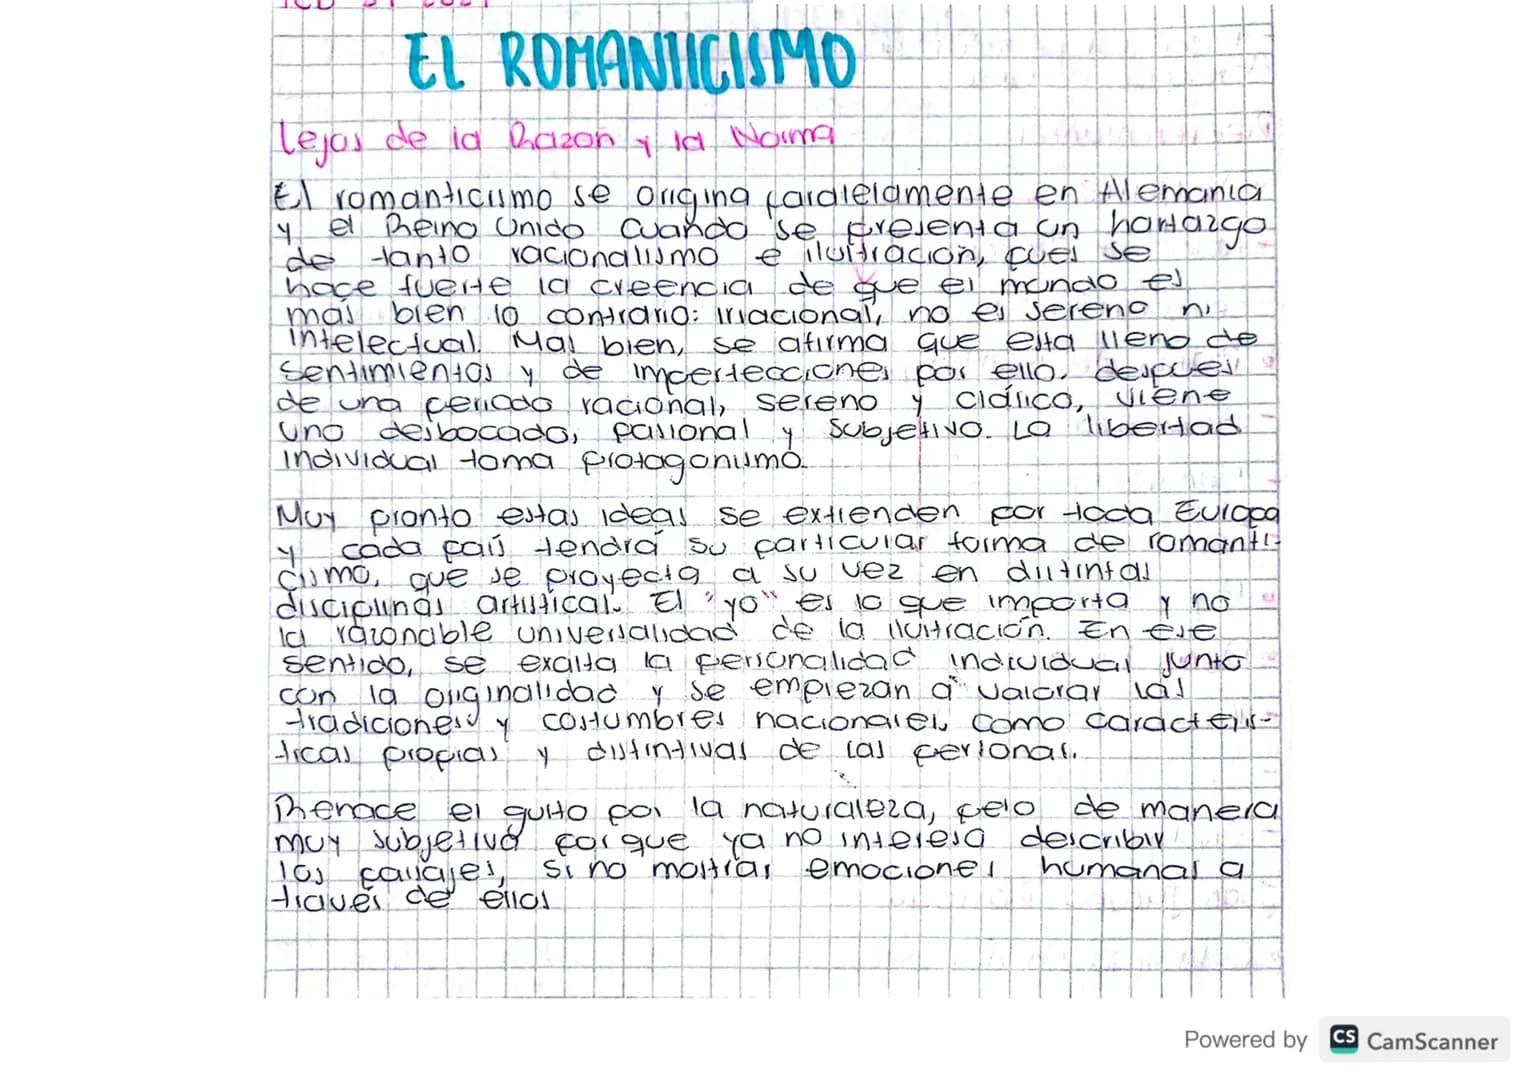 EL ROMANTICISMO
Lejos de la Razon y la Norma
El romanticismo se origina paralelamente en Alemania
y el Reino Unido cuando se presenta un hartazgo
de tanto racionalismo e ilustración, pues se
hace fuerte la creencia de que el mundo es
más bien lo contrario: irracional, no es sereno ni
intelectual. Mas bien, se afirma que esta lleno de
sentimientos y de imperfecciones por ello, despues
de una periodo racional, sereno y clásico, viene
uno desbocado, pasional y subjetivo. La libertad
individual toma protagonismo.
Muy pronto estas ideas se extienden por toda Europa
y cada país tendrá su particular forma de romanti-
cismo, que se proyecta a su vez en distintas
disciplinas artisticas. El "yo" es lo que importa y no
la razonable universalidad de la ilustración. En ese
sentido, se exalta la personalidad individual junto
con la originalidad y se empiezan a valorar las
tradiciones y costumbres nacionales, como caracterís-
ticas propias y distintivas de las personas.
Renace el gusto por la naturaleza, pero de manera
muy subjetiva porque ya no interesa describir
los paisajes, si no mostrar emociones humanas a
través de ellos
Powered by CS CamScanner